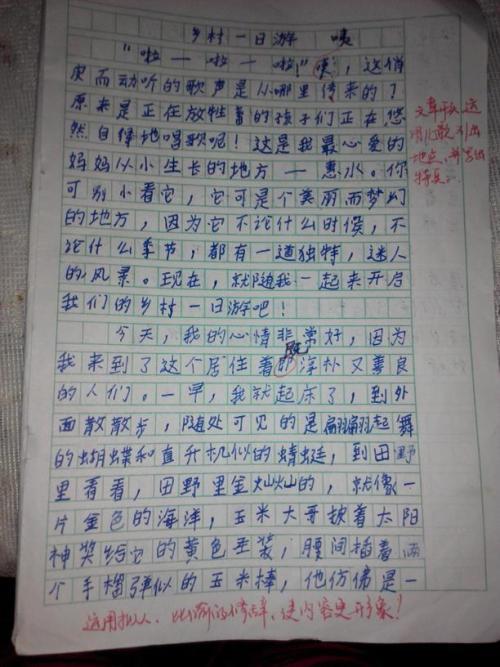 乡村一日游 咦
“啦—啦—啦!”咦,这俏
皮而动听的歌声是从哪里传来的?
原来是正在放牲畜的孩子们正在悠
然自得地唱歌呢!这是我最心爱的
妈妈从小生长的地方—惠水。你
可别小看它,它可是个美丽而梦幻
的地方,因为它不论什么时候,不
论什么季节,都有一道独特,迷人
的风景。现在,就随我一起来开启
我们的乡村一日游吧!
今天,我的心情非常好,因为
我来到了这个居住着既淳朴又善良
的人们。一早,我就起床了,到外
面散散步,随处可见的是翩翩起舞
的蝴蝶和直升机似的蜻蜓,到田野
里看看,田野里金灿灿的,就像一
片金色的海洋,玉米大哥披着太阳
神奖给它的黄色圣装,腰间插着两
个手榴弹似的玉米棒,他仿佛是一
文章开头运
用儿歌引出
地点,并写出
特点。
运用拟人、比喻的修辞,使内容更形象!